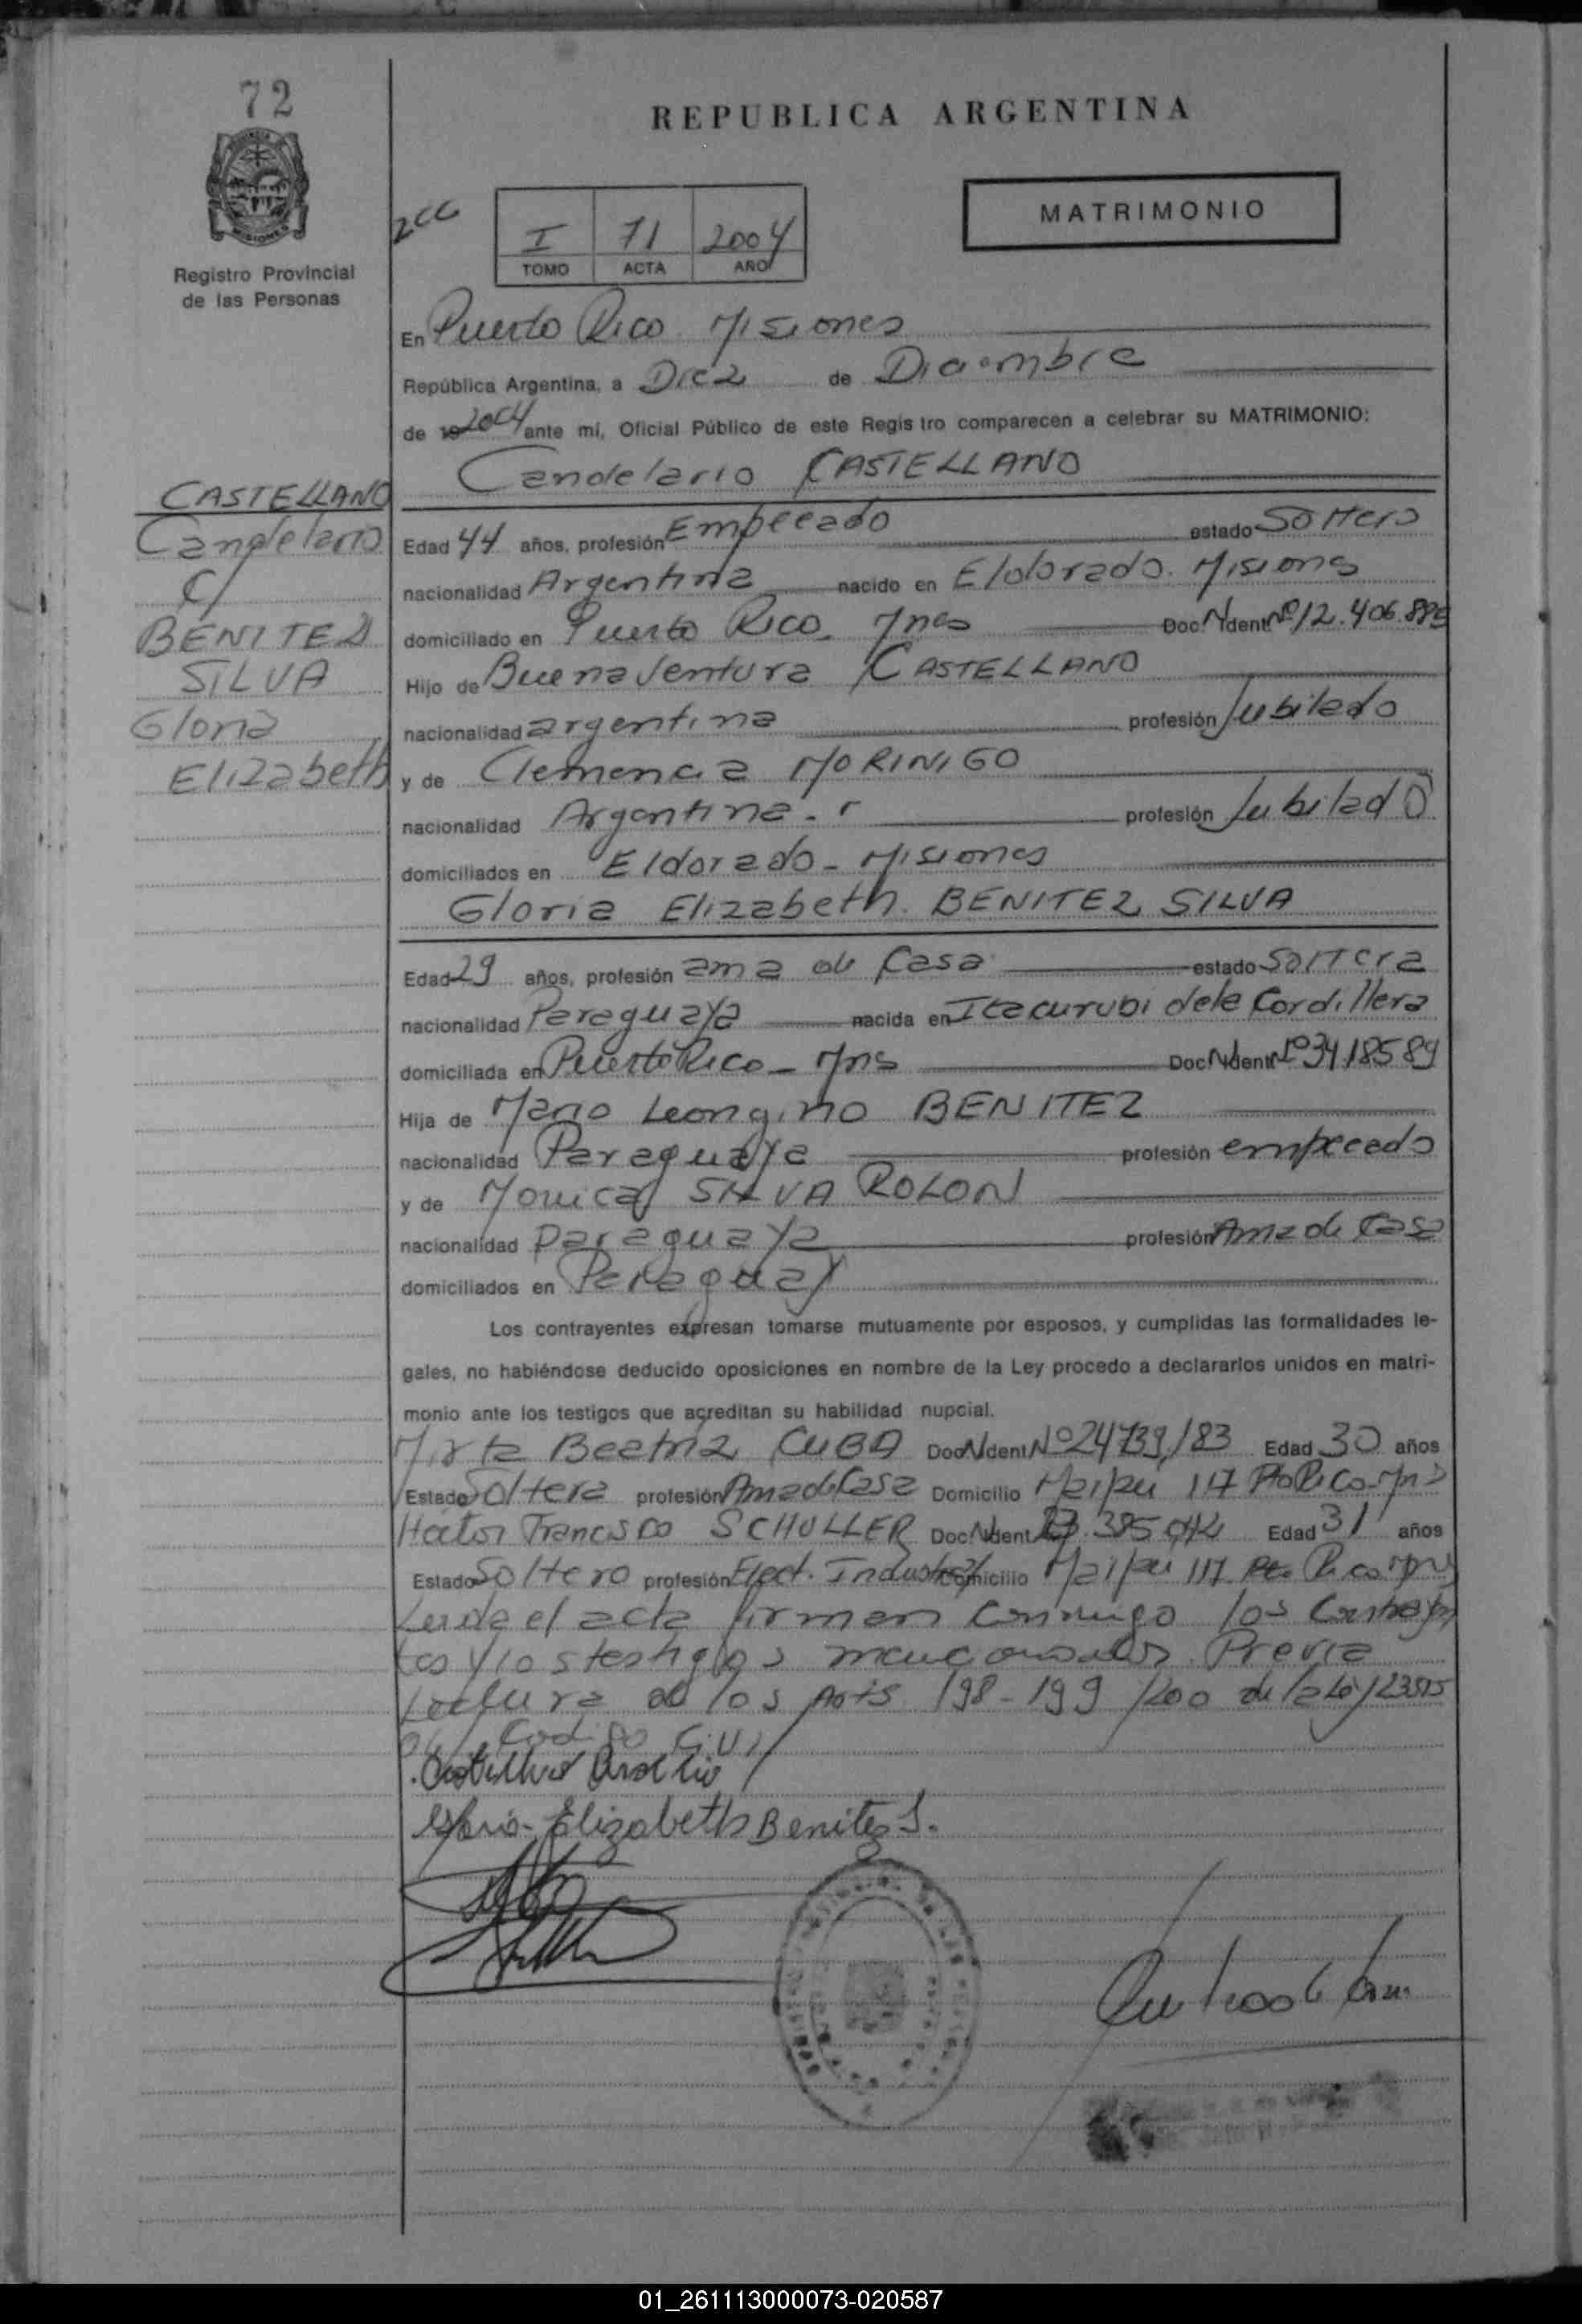 72
REPUBLICA ARGENTINA
MATRIMONIO
I 71 2004
TOMO ACTA AÑO
Registro Provincial
de las Personas
En Puerto Rico Misiones
República Argentina, a Diez de Diciembre
de 19 2004 ante mí, Oficial Público de este Registro comparecen a celebrar su MATRIMONIO:
Candelario CASTELLANO
CASTELLANO
Candelario
c/
BENITEZ
SILVA
Gloria
Elizabeth
Edad 44 años, profesión Empleado estado Soltero
nacionalidad Argentina nacido en Eldorado. Misiones
domiciliado en Puerto Rico Mnes Doc. N Ident Nº 12.406.885
Hijo de Buenaventura CASTELLANO
nacionalidad argentina profesión Jubilado
y de Clemencia MORINIGO
nacionalidad Argentina. profesión Jubilado
domiciliados en Eldorado - Misiones
Gloria Elizabeth BENITEZ SILVA
Edad 29 años, profesión ama de Casa estado Soltera
nacionalidad Paraguaya nacida en Itacurubi de la Cordillera
domiciliada en Puerto Rico - Mns Doc N Ident Nº 3418589
Hija de Mario Leongino BENITEZ
nacionalidad Paraguaya profesión empleado
y de Monica SILVA ROLON
nacionalidad paraguaya profesión Ama de Casa
domiciliados en Paraguay
Los contrayentes expresan tomarse mutuamente por esposos, y cumplidas las formalidades le-
gales, no habiéndose deducido oposiciones en nombre de la Ley procedo a declararlos unidos en matri-
monio ante los testigos que acreditan su habilidad nupcial.
Mirta Beatriz CUBA Doc N Ident Nº 24739183 Edad 30 años
Estado Soltera profesión Ama de Casa Domicilio Maipú 117 Pto Rico Mns
Hector Francisco SCHULLER Doc. N Ident 385.042 Edad 31 años
Estado Soltero profesión Elect. Industrial Domicilio Maipu 117 Pto Rico Mns
Leida el acta firman conmigo los Contrayen
tes y los testigos mencionados. Previa
Lectura de los Arts 198-199/200 de la Ley 23515
del Codigo Civil
Gloria Elizabeth Benitez S.
01_261113000073-020587